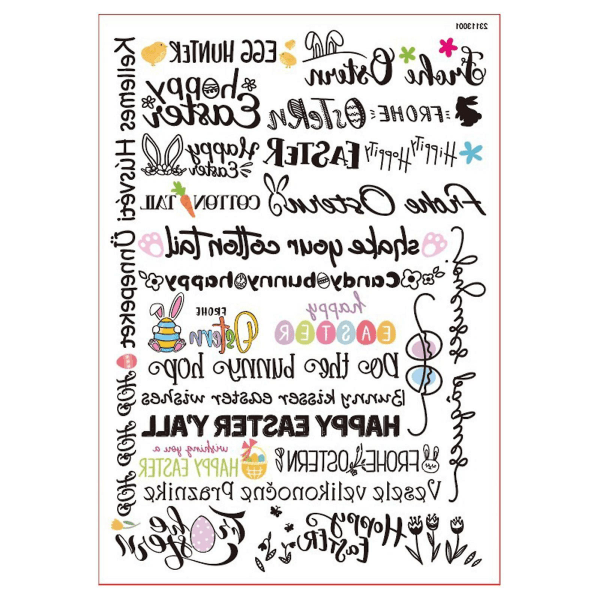 23113001
Frohe Ostern
EGG HUNTER
FROHE OSTERN
hoppy Easter
Hippity Hoppity EASTER
Happy
Happy Easter
Frohe Ostern
COTTON TAIL
shake your cotton tail
Candy bunny happy
happy
EASTER
FROHE
Ostern
Do the bunny hop
Bunny kisser easter wishes
HAPPY EASTER Y'ALL
FROHE OSTERN
wishing you a
HAPPY EASTER
Vesele velikonočne Praznike
Hoppy
EASTER
Frohe
Ostern
Kellemes Húsvéti Ünnepeket
HOP HOP HOP